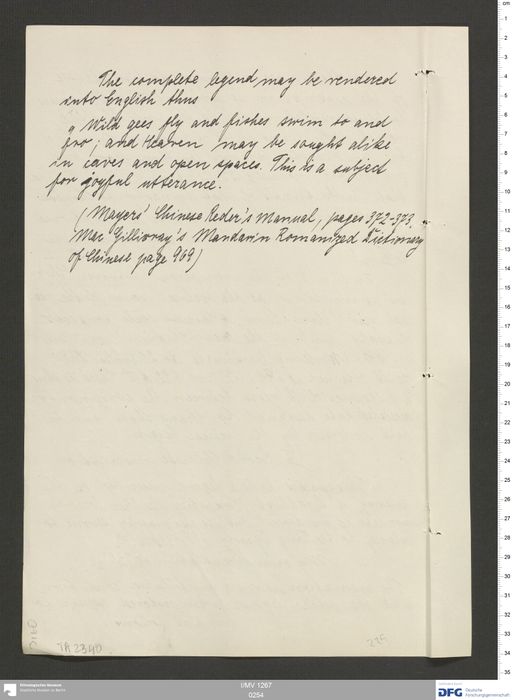 The complete legend may be rendered
into English thus
„Wild gees fly and fishes swim to and
fro; and Heaven may be sought alike
in caves and open spaces. This is a subject
for joyful utterance.
(Mayers' Chinese Reder's Manual, pages 372-373.
Mac Gillivray's Mandarin Romanized Dictionary
of Chinese page 969)
TA 2340
I/MV 1267
0254
Ethnologisches Museum
Staatliche Museen zu Berlin
DFG
Deutsche
Forschungsgemeinschaft
cm
1
2
3
4
5
6
7
8
9
10
11
12
13
14
15
16
17
18
19
20
21
22
23
24
25
26
27
28
29
30
31
32
33
34
35